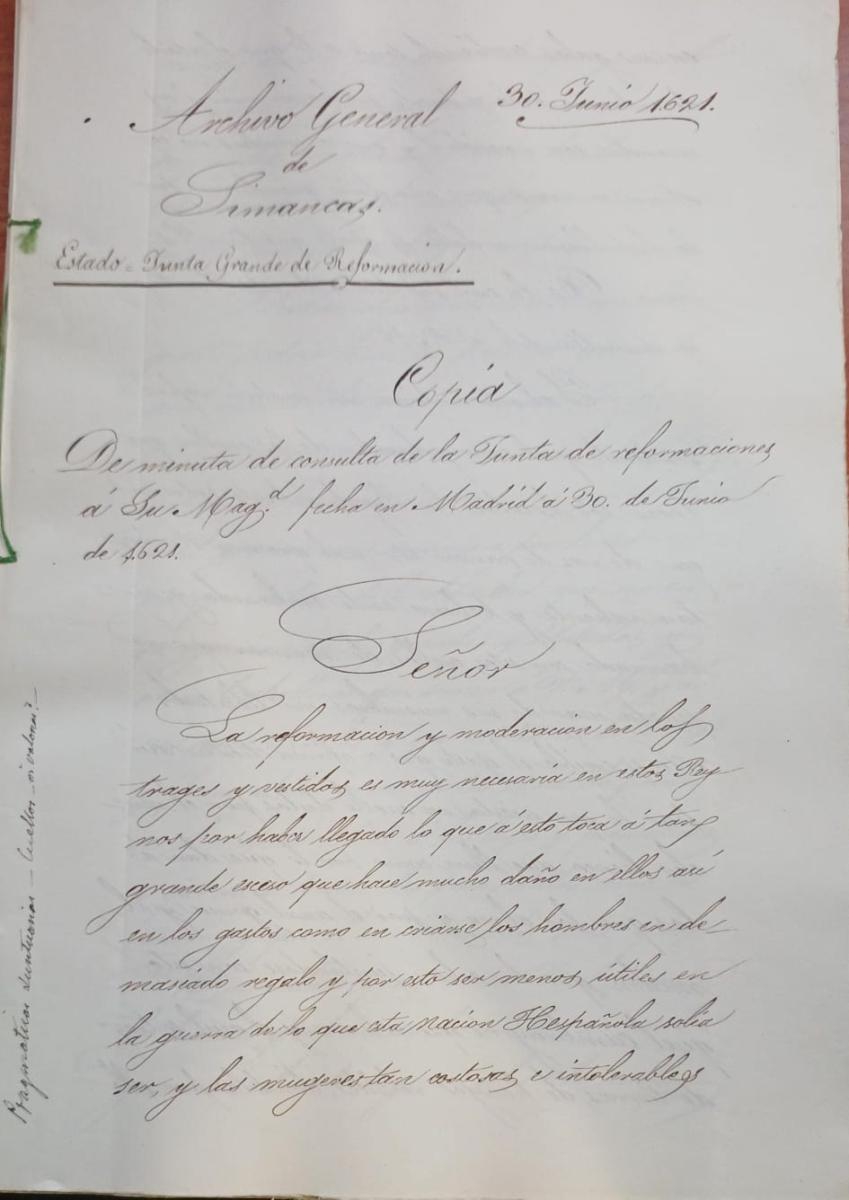 Archivo General
de
Simancas.
30. Junio 1621.
Estado = Junta Grande de Reformacion.
Copia
De minuta de consulta de la Junta de reformaciones
á Su Mag.d fecha en Madrid á 30. de Junio
de 1621.
Señor
La reformacion y moderacion en los
trages y vestidos, es muy necesaria en estos Rey
nos por haber llegado lo que á esto toca á tan
grande esceso que hace mucho daño en ellos asi
en los gastos como en criarse los hombres en de-
masiado regalo y por esto ser menos útiles en
la guerra de lo que esta nacion Hespañola solia
ser, y las mugeres tan costosas e intolerables
Pragmáticas suntuarias – Cuellos –